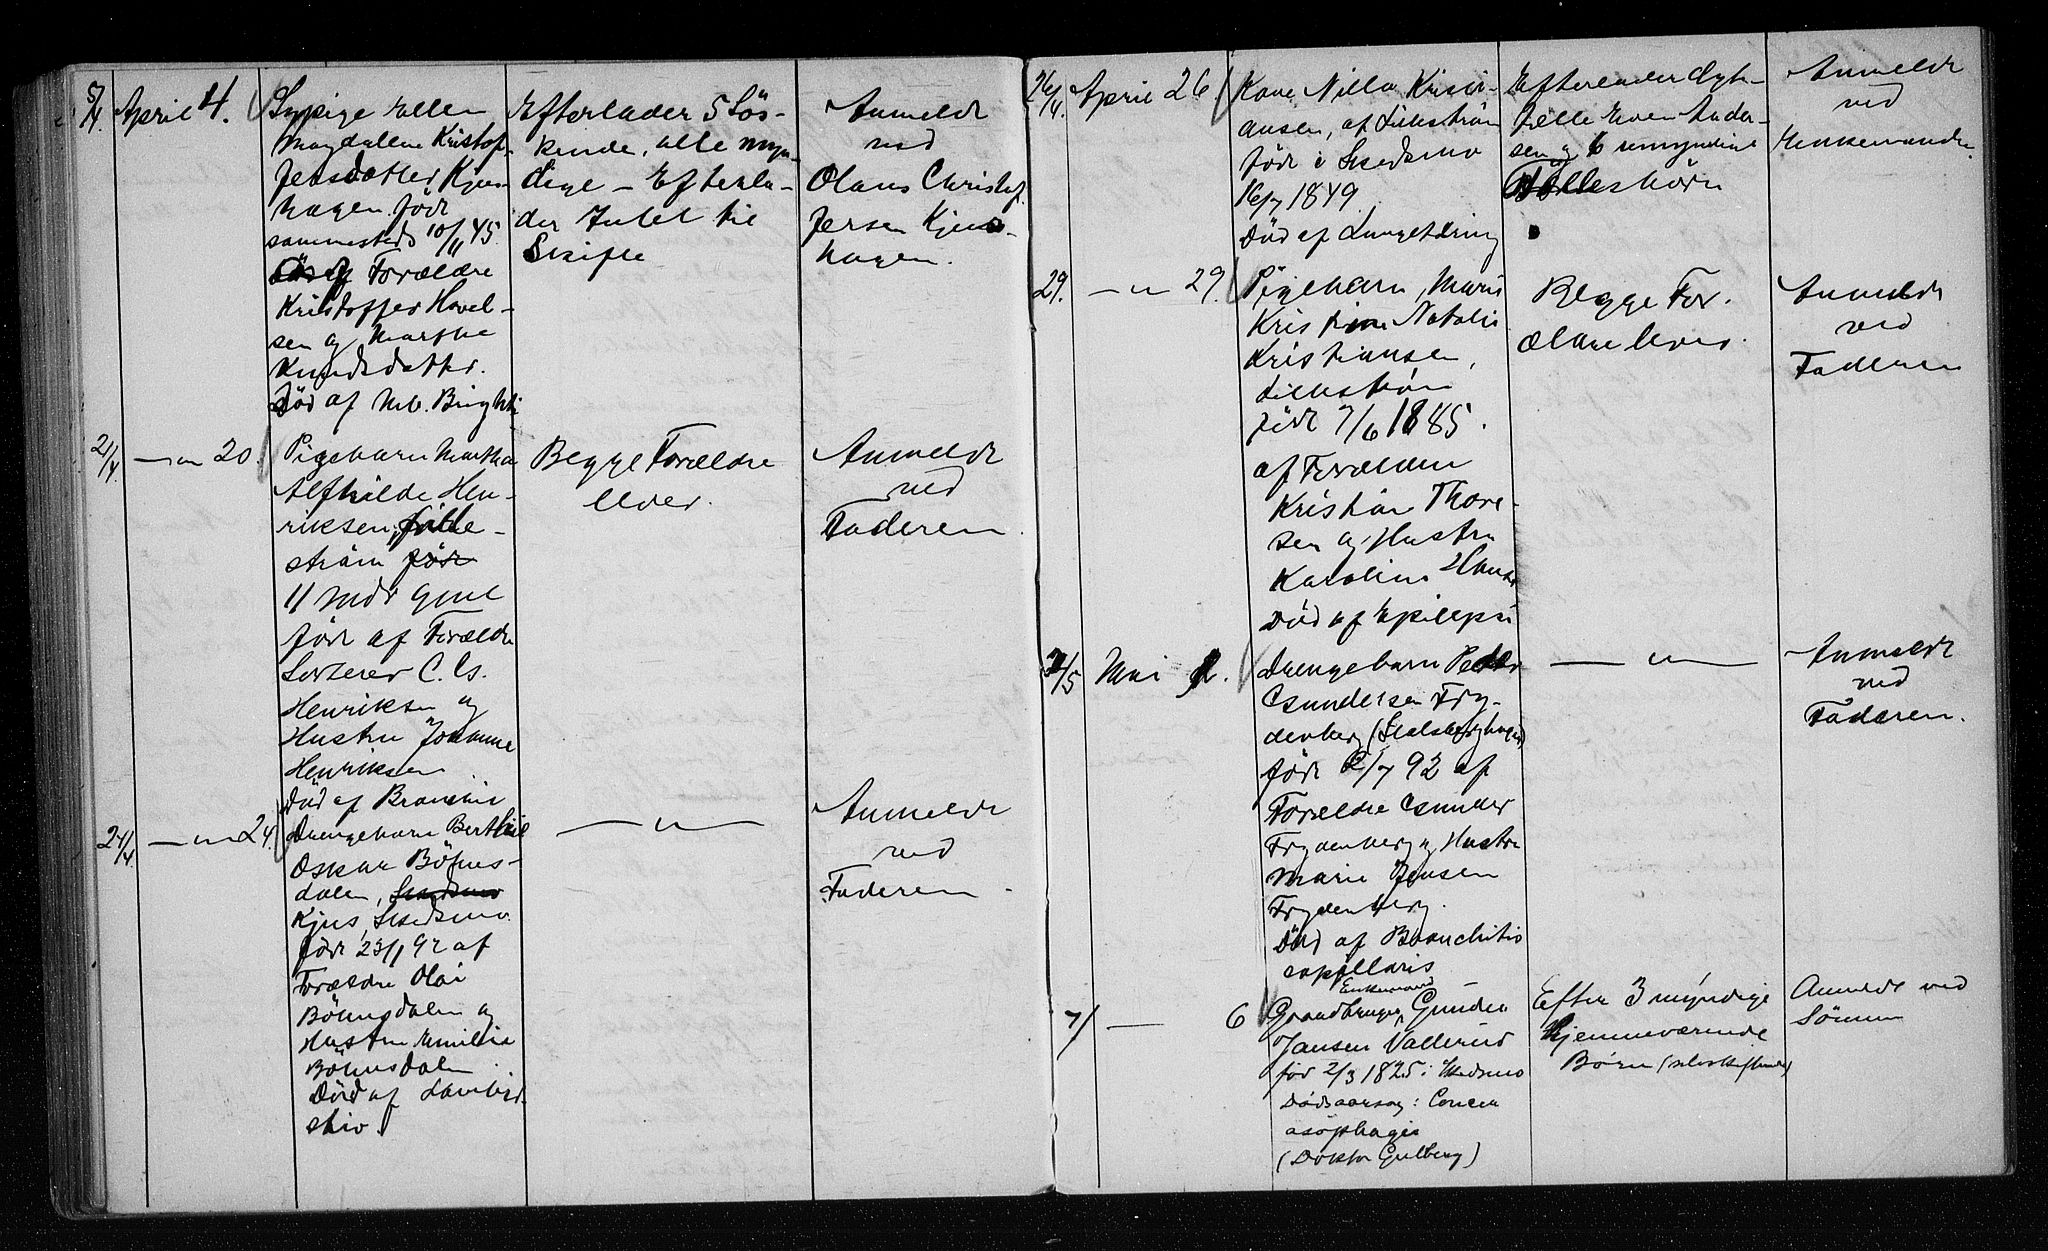 5/4 April 4.
Sypige Ellen
Magdalene Kristof-
fersdatter Kjus-
hagen. født
sammesteds 10/11 45.
af Forældre
Kristoffer Havel-
sen og Marthe
Knudsdatter.
Død af Mb. Brightii
Efterlader 5 Søs-
kende, alle myn-
dige – Efterla-
der Intet til
Skifte
Anmeldt
ved
Olaus Christof-
fersen Kjus-
hagen.
21/4 – " – 20.
Pigebarn Martha
Alfhilde Hen-
riksen, Lille-
strøm født
11 Mdr gml
født af Forældre
Sorterer C.
Henriksen og
Hustru Johanne
Henriksen
Død af Bronchit
Begge Forældre
lever.
Anmeldt
ved
Faderen.
24/4 – " – 24.
Drengebarn Berthel
Oskar Böhns-
dalen, Skedsmo
Kjus, Skedsmo.
født 23/1 92 af
Forældre Olai
Böhnsdalen og
Hustru Emilie
Böhnsdalen
Död af
– " –
Anmeldt
ved
Faderen.
26/4. April 26.
Kone Nilla Kristi-
ansen, af Lillestrøm
født i Skedsmo
1849.
Död af Lungetæring
Efterlader Ægte-
fælle Even Ander-
sen og 6 umyndige
Fællesbörn
Anmeldt
ved
Enkemanden.
29. – " – 29.
Pigebarn, Maris
Kristine Natalie
Kristiansen,
Lillestrøm
født 7/6 1885.
af Forældre
Kristian Thore-
sen og Hustru
Karoline Hans
Död af Epilepsi
Begge For-
ældre lever.
Anmeldt
ved
Faderen
2/5 Mai 2.
Drengebarn Peder
Gundersen Fry-
denberg (Stalsberghagen)
født 2/7 92 af
Forældre Gunder
Frydenberg og Hustru
Marie Jensen
Frydenberg.
Död af Bronchitis
capillaris
– " –
Anmeldt
ved
Faderen.
7/ – 6
Enkemand
Grandbruger, Gunder
Jansen Vallerud
før 2/3 1825 i Skedsmo
Dödsaarsag: Cancer
øsophagis
(Doktor Gulberg)
Efter 3 myndige
hjemmeværende
Børn (selvskiftende)
Anmeldt ved
Sønnen